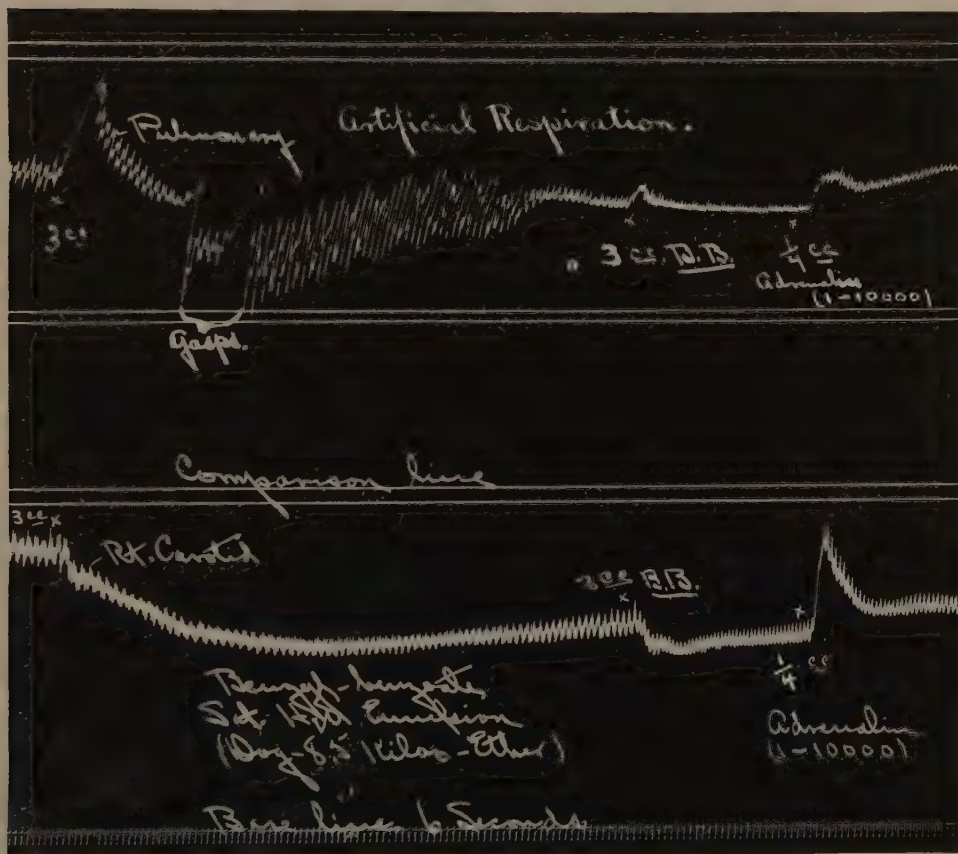 Pulmonary
Artificial Respiration.
3 cc
3 cc. B.B.
1/4 cc
Adrenalin
(1-10000)
Gasps.
Comparison line
3 cc x
Rt. Carotid
cc B.B.
1/4 cc
Benzyl-benzoate
Emulsion
(Dog-8.5 Kilos-Ether)
Adrenalin
(1-10000)
Base line 6 Seconds